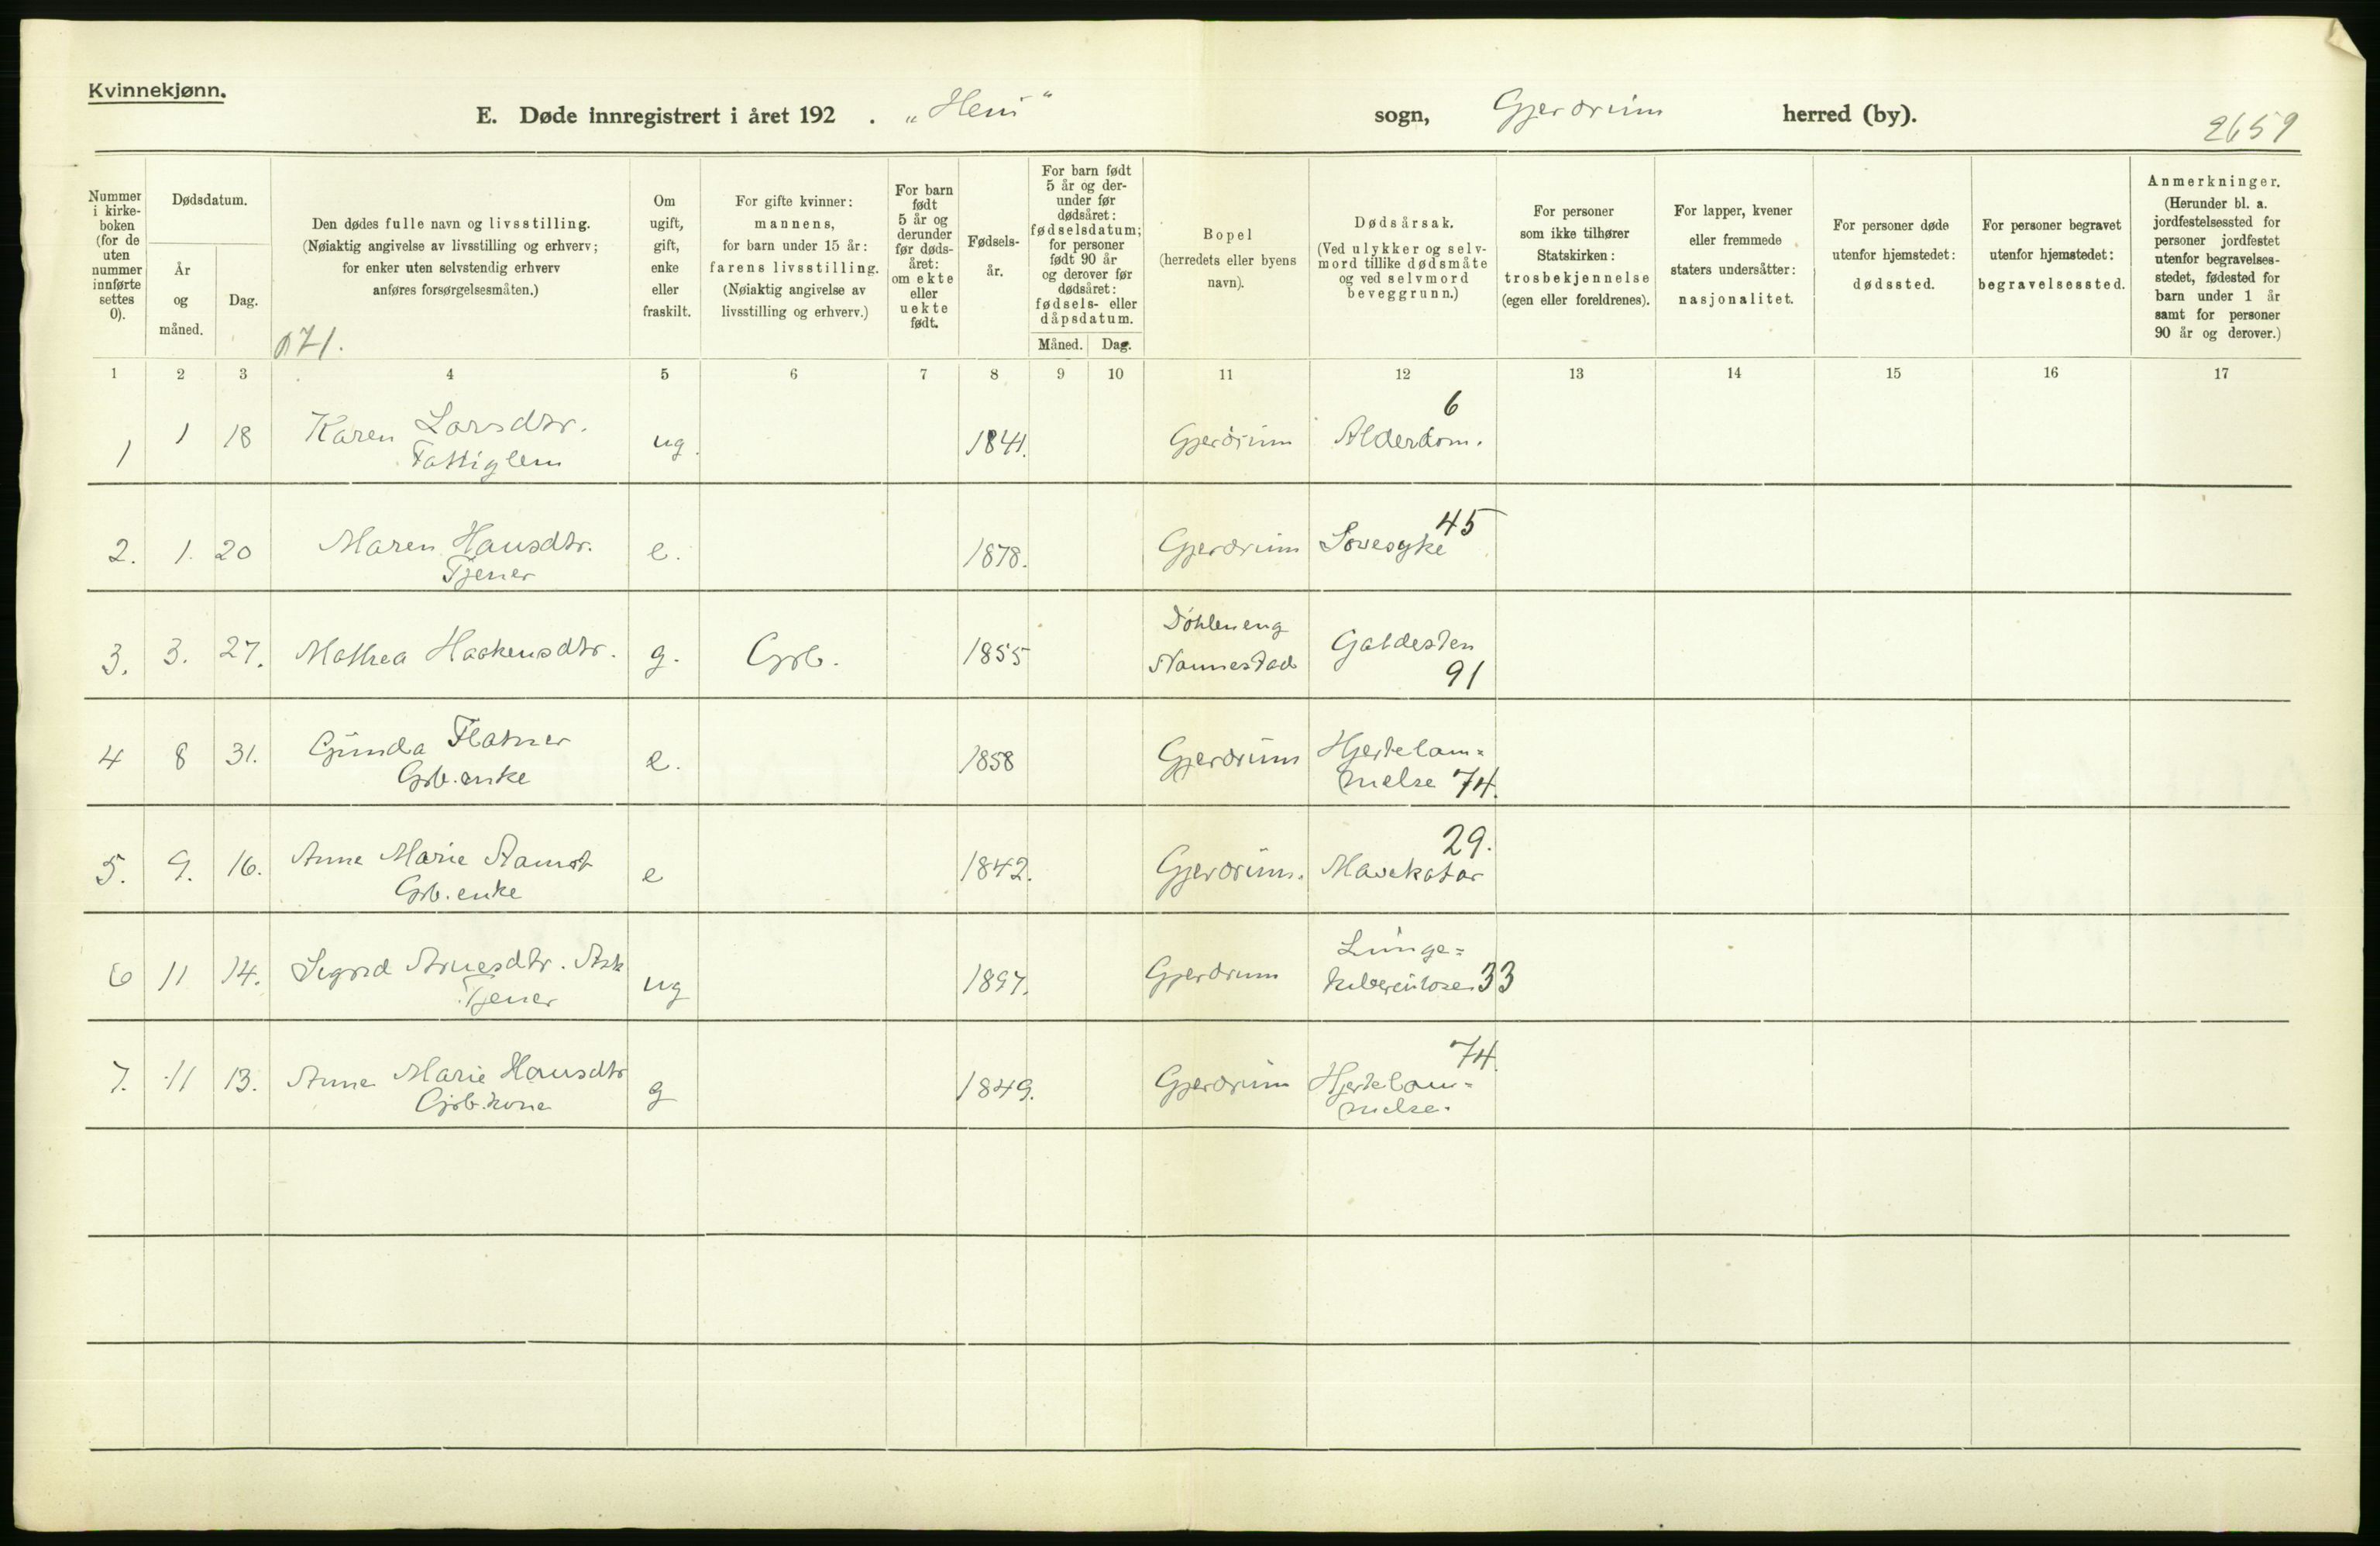 Kvinnekjønn.
E. Døde innregistrert i året 192 . „Heni“ sogn, Gjerdrum herred (by). 2659
Nummer i kirke-boken (for de uten nummer innførte settes 0).
Dødsdatum.
År og måned.
Dag.
Den dødes fulle navn og livsstilling.
(Nøiaktig angivelse av livsstilling og erhverv;
for enker uten selvstendig erhverv
anføres forsørgelsesmåten.)
171.
Om ugift, gift, enke eller fraskilt.
For gifte kvinner:
mannens,
for barn under 15 år:
farens livsstilling.
(Nøiaktig angivelse av
livsstilling og erhverv.)
For barn født 5 år og derunder før døds-året: om ekte eller uekte født.
Fødsels-år.
For barn født
5 år og der-
under før
dødsåret:
fødselsdatum;
for personer
født 90 år
og derover før
dødsåret:
fødsels- eller
dåpsdatum.
Måned. Dag.
Bopel
(herredets eller byens
navn).
Dødsårsak.
(Ved ulykker og selv-
mord tillike dødsmåte
og ved selvmord
beveggrunn.)
For personer
som ikke tilhører
Statskirken:
trosbekjennelse
(egen eller foreldrenes).
For lapper, kvener
eller fremmede
staters undersåtter:
nasjonalitet.
For personer døde
utenfor hjemstedet:
dødssted.
For personer begravet
utenfor hjemstedet:
begravelsessted.
Anmerkninger.
(Herunder bl. a.
jordfestelsessted for
personer jordfestet
utenfor begravelses-
stedet, fødested for
barn under 1 år
samt for personer
90 år og derover.)
1 2 3 4 5 6 7 8 9 10 11 12 13 14 15 16 17
6
1 1 18 Karen Larsdtr. ug. 1841. Gjerdrum Alderdom.
Fattiglem
45
2. 1. 20 Maren Hansdtr. e. 1878. Gjerdrum Sovesyke
Tjener
Döhleneng
3. 3. 27. Mathea Haakensdtr. g. Grb. 1855 Nannestad Galdesten
91
4 8 31. Gunda Flatner e. 1858 Gjerdrum Hjertelam=
Grb. enke melse 74.
29.
5. 9. 16. Anne Marie Aamot e 1842. Gjerdrum. Mavekatar
Grb. enke
Lunge=
6 11 14. Sigrid Arnesdtr. Ask ug 1897. Gjerdrum tuberculose 33
Tjener
74.
7. 11 13. Anne Marie Hansdtr g 1849. Gjerdrum Hjertelam=
Grb. kone melse.